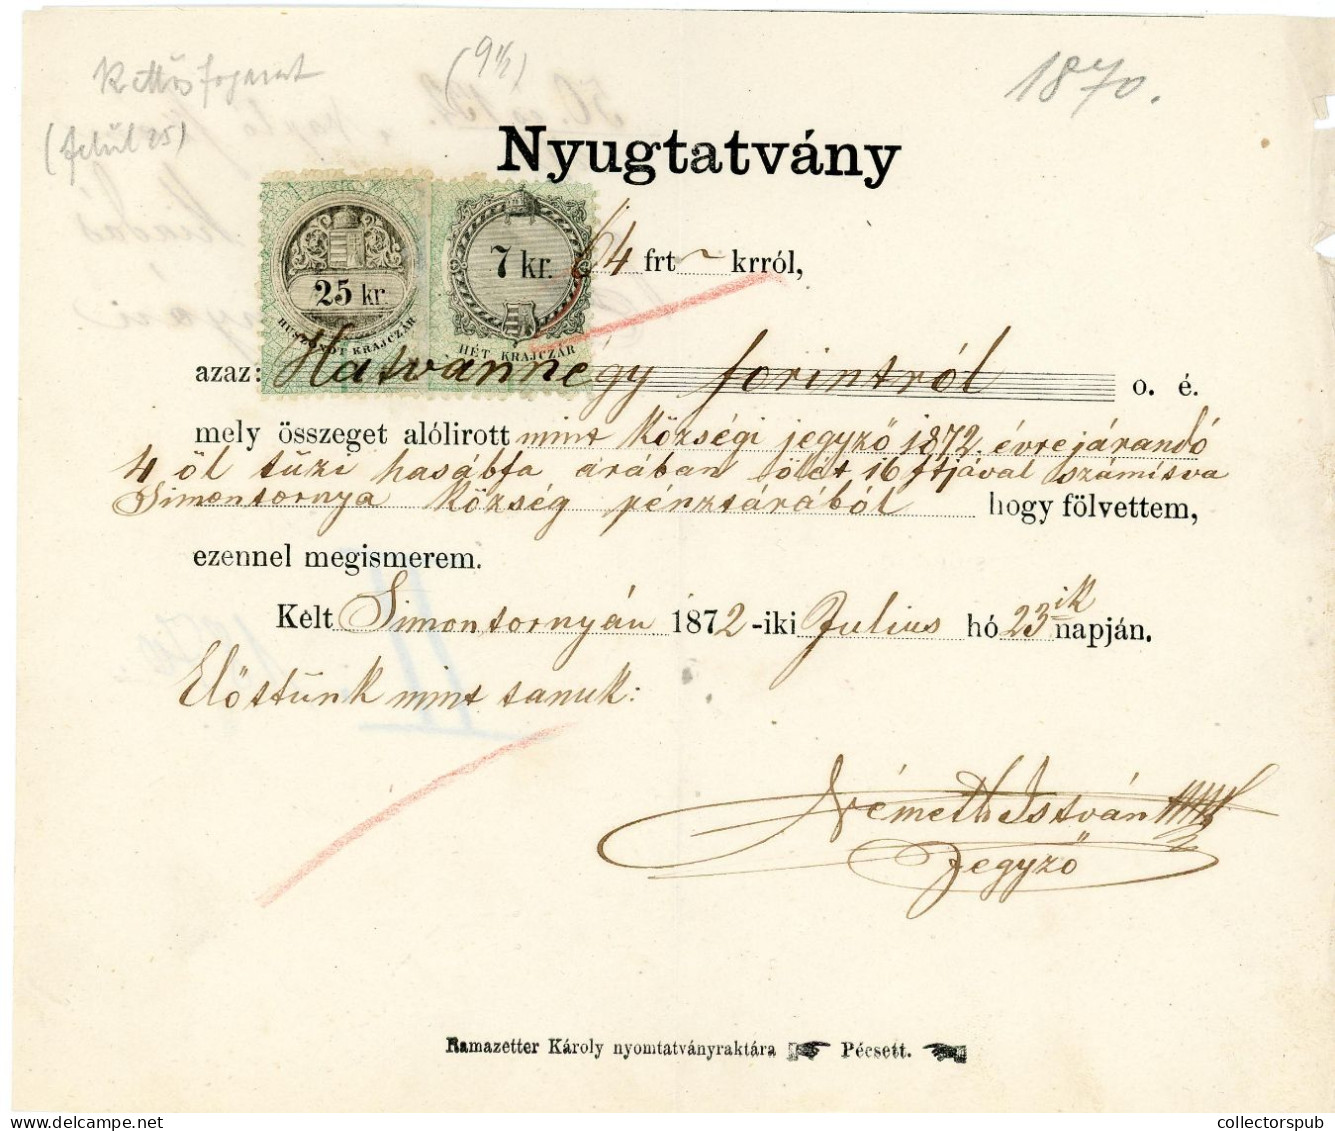 Kettős fogazat
(9½)
1870.
(felül 25)
Nyugtatvány
25 kr
HUSZONÖT KRAJCZÁR
7 kr.
HÉT KRAJCZÁR
64 frt ~ krról,
azaz: Hatvannégy forintról o. é.
mely összeget alólirott mint községi jegyző 1872. évre járandó
4 öl tűzi hasábfa árában ölét 16 ftjával számítva
Simontornya község pénztárából hogy fölvettem,
ezennel megismerem.
Kelt Simontornyán 1872-iki Julius hó 23ik napján.
Előttünk mint tanuk:
Németh István
Jegyző
Ramazetter Károly nyomtatványraktára Pécsett.
collectorspub